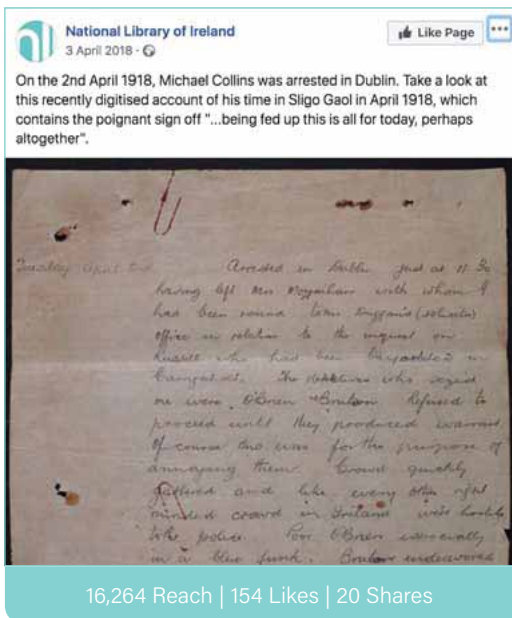 National Library of Ireland
3 April 2018 ·
Like Page
On the 2nd April 1918, Michael Collins was arrested in Dublin. Take a look at
this recently digitised account of his time in Sligo Gaol in April 1918, which
contains the poignant sign off "...being fed up this is all for today, perhaps
altogether".
Tuesday April 2nd Arrested in Dublin just at 11.30
having left Mrs with whom I
had been round (solicitor)
office in relation to the inquest on
who had been in
The detectives who seized
me were O'Brien & Bruton Refused to
proceed until they produced warrant
Of course this was for the purpose of
annoying them. Crowd quickly
gathered and like every other right
minded crowd in Ireland were hostile
to the police. Poor O'Brien was really
in a blue funk. Bruton endeavored
16,264 Reach | 154 Likes | 20 Shares